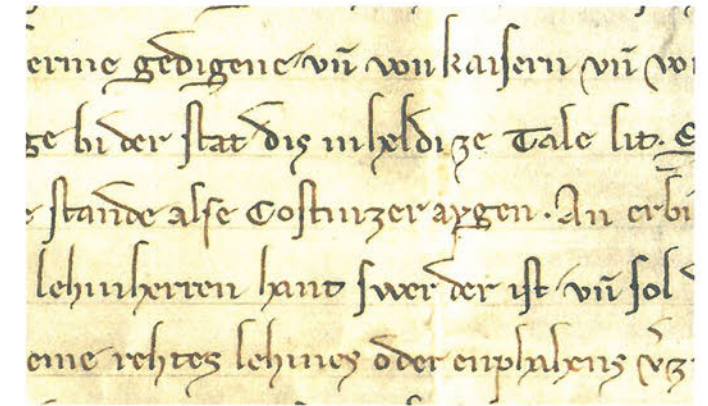 erme gedigene vn̄ von kaisern vn̄ vo
ge bi der stat dis inheldi ze Tale lit.
stande alse Costinzer aygen. An erbi
lehinherren hant swer der ist vn̄ sol
eme rehtes lehines oder enphahens